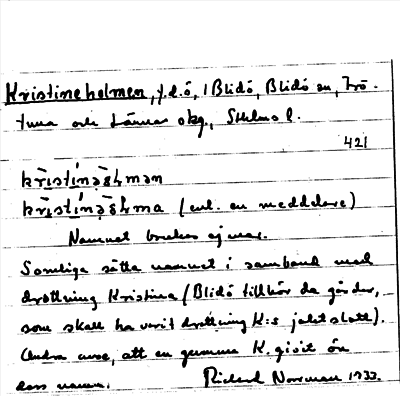 Kristineholmen, f.d. ö, i Blidö, Blidö sn, Frö-
tuna och Länna skg., Sthlms l.
421
Namnet brukas ej mer.
Somliga sätta namnet i samband med
drottning Kristina (Blidö tillhör da gårdar,
som skall ha varit drottning K:s jaktslott).
Andra anse, att en gumma K. givit ön
dess namn. Richard Norrman 1933.